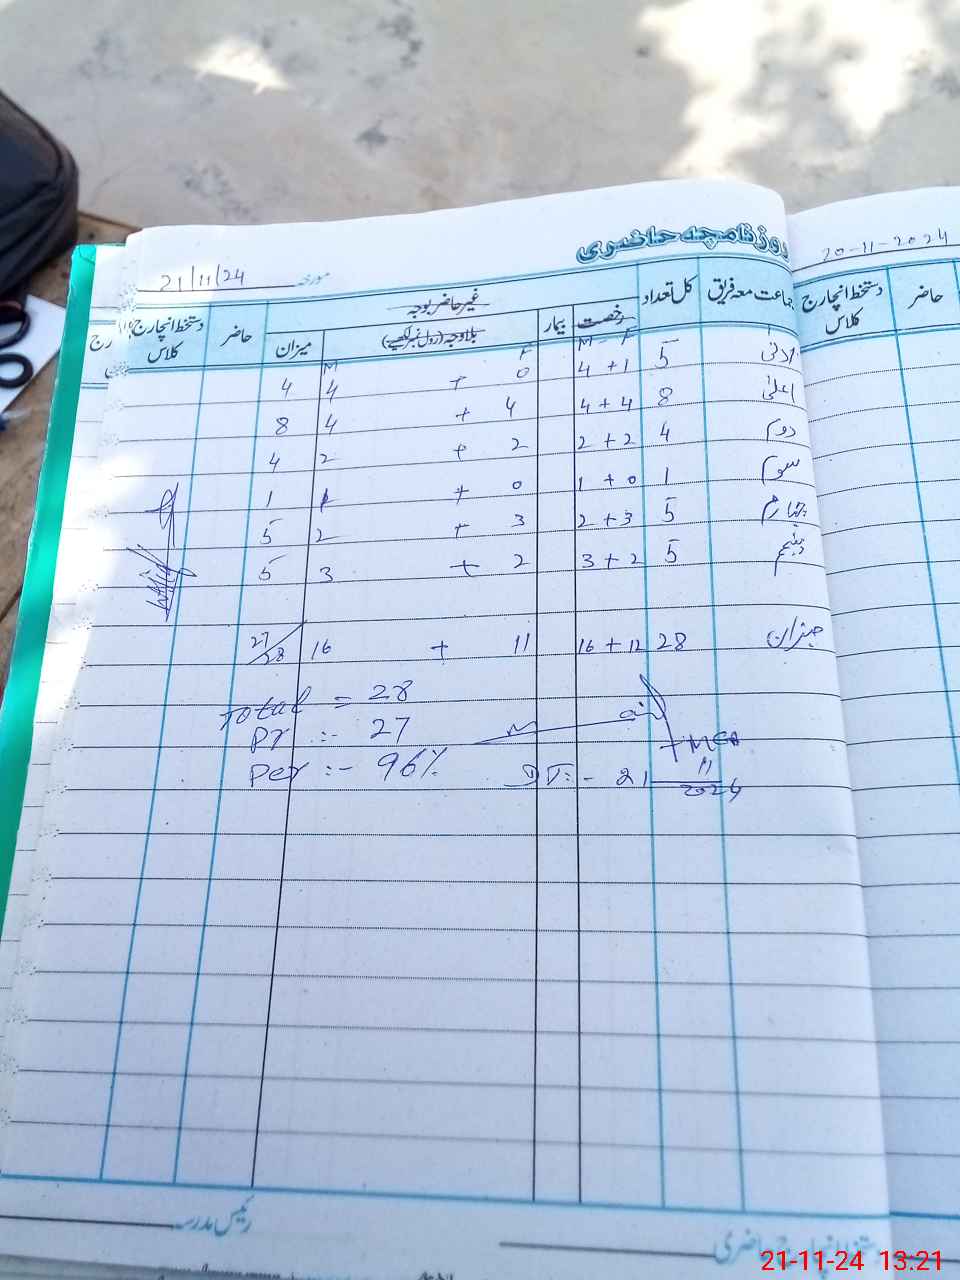 روزنامچہ حاضری
مورخہ 21/11/24
20-11-2024
جماعت معہ فریق کل تعداد غیر حاضر بوجہ حاضر دستخط انچارج کلاس
رخصت بیمار بلاوجہ (رول نمبر لکھیے) میزان
حاضر دستخط انچارج کلاس
M - F F M
ادنیٰ 5 4 + 1 0 + 4 4
اعلیٰ 8 4 + 4 4 + 4 8
دوم 4 2 + 2 2 + 2 4
سوم 1 1 + 0 0 + 1 1
چہارم 5 2 + 3 3 + 2 5
پنجم 5 3 + 2 2 + 3 5
میزان 28 16 + 12 11 + 16 27/28
Total = 28
Pr :- 27
Per :- 96%
DT:- 21 11 2024
رئیس مدرسہ
دستخط انچارج حاضری
21-11-24 13.21